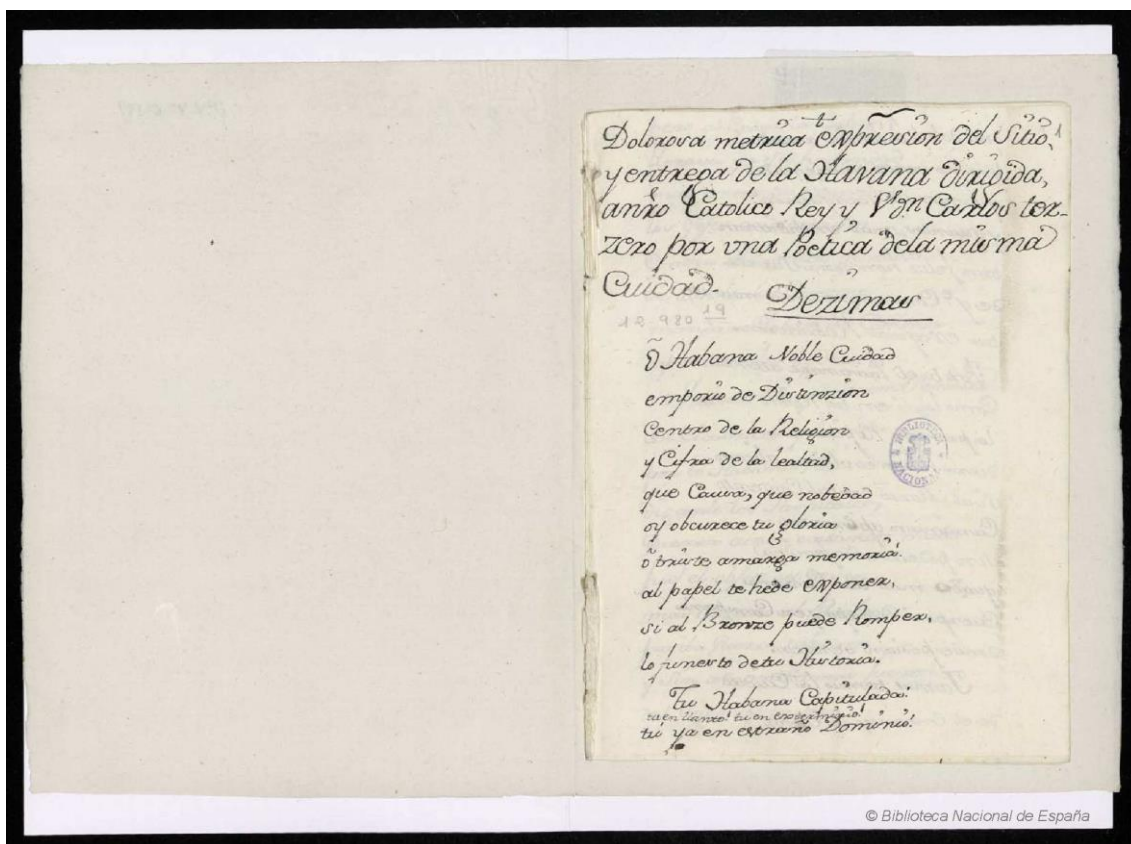 Dolorosa metrica expresion del Sitio,
y entrega de la Havana dirigida,
anřo Catolico Rey y Sʳ dⁿ Carlos ter-
zero por vna Poetica dela misma
Cuidad.
Dezimas
12 920 19
ô Habana Noble Cuidad
emporio de Distinzion
Centro de la Religion
y Cifra de la lealtad,
que Causa, que nobedad
oy obcurece tu gloria
ô triste amarga memoria!
al papel te hede exponer,
si al Bronze puede Romper,
lo funesto detu Historia.
Tu Habana Capitulada!
tu en llanto! tu en exterminio!
tu ya en estraño Dominio!
BIBLIOTECA NACIONAL
© Biblioteca Nacional de España